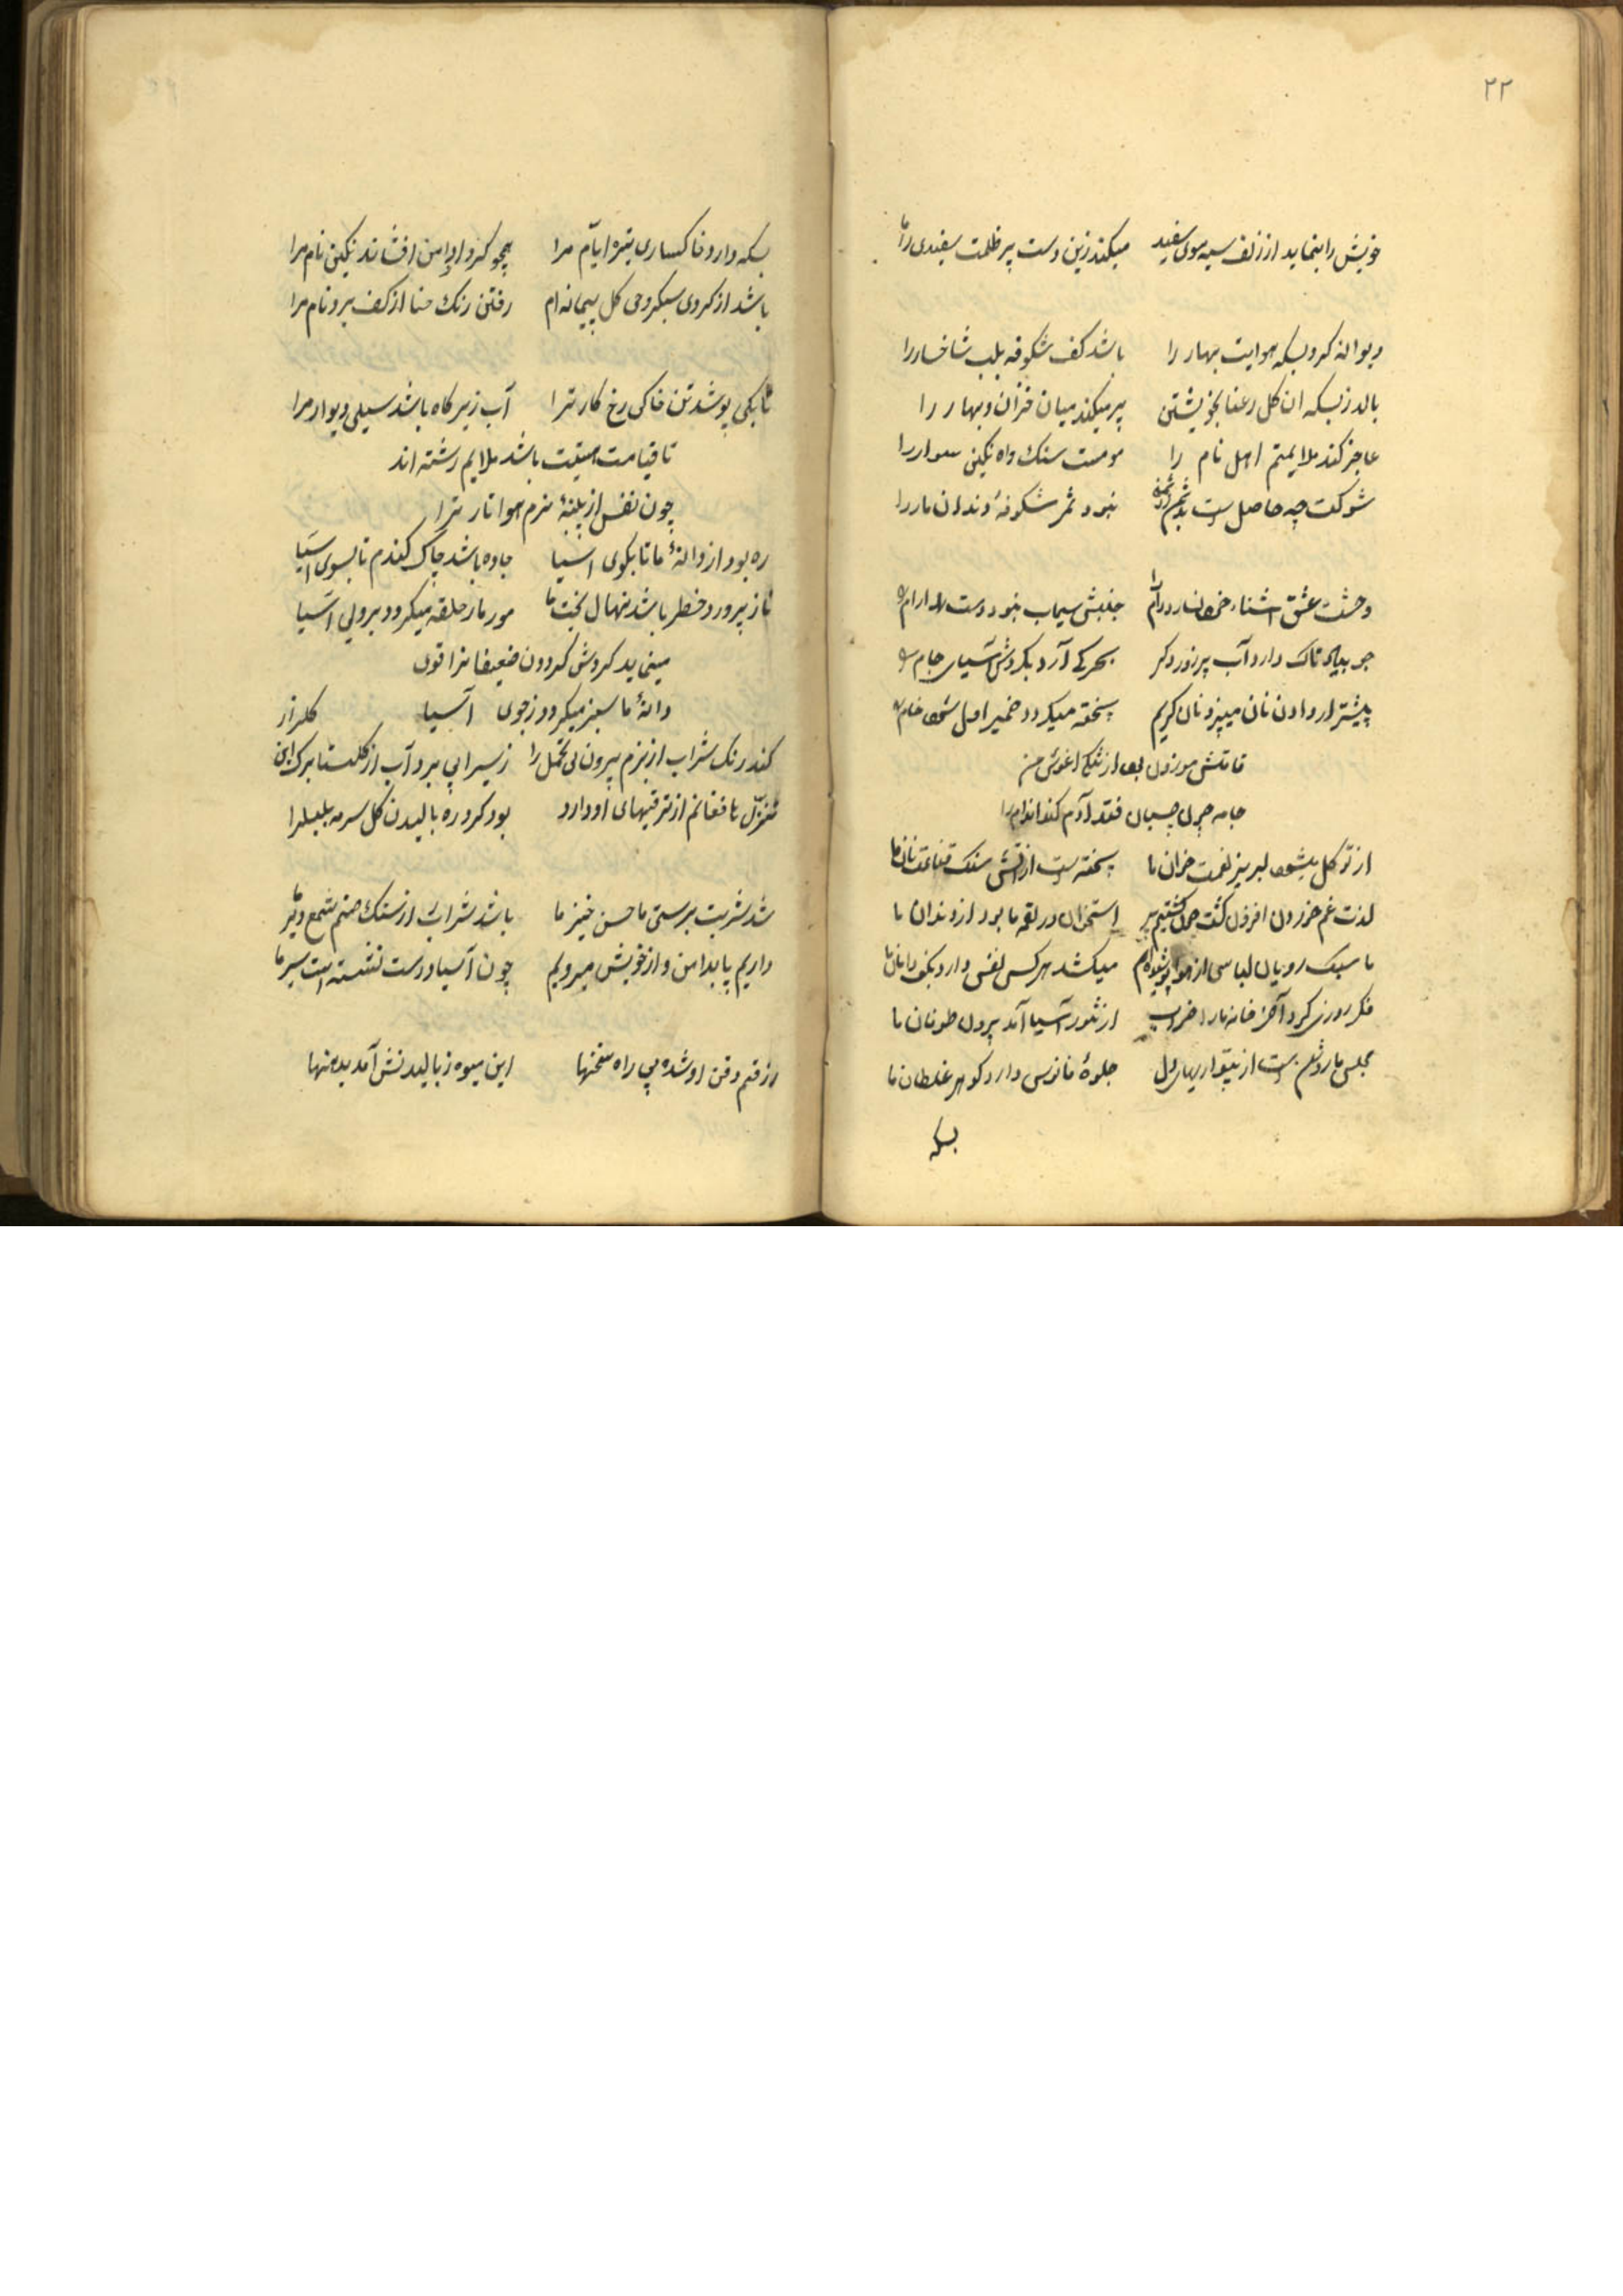 ۲۲
خویش را بنماید از زلف سیه موی سفید میکند زین دست پر ظلمت سفیدی را
دیوانه کرد بسکه هوایت بهار را باشد کف شکوفه بلب شاخسار را
بالد ز بسکه ان کل رعنا بخویشتن پر میکند میان خزان و بهار را
عاجز کند ملایمتم اهل نام را مومست سنک راه نکین سوار را
شوکت چه حاصل است نبود ثمر شکوفهٔ دندان مار را
وحشت عشق اشنا جنبش سیماب نبود دست
دارد آب بحر کی آرد بکردش آسیای جام
پیشتر از دادن نان میپزد نان کریم پخته میکردد خمیر اهل
قامتش موزون بود از تنکی اغوش من
جامه چون چسبان فتد آدم کند اندام را
از توکل میشود لبریز نعمت خوان ما پخته است از آتش سنک قناعت نان ما
لذت غم خوردن افزون کشت چون کشتیم پیر استخوان در لقمه ما بود از دندان ما
ما سبک روحان لباسی از هوا پوشیده ایم میکشد هر کس نفس دارد بکف دامان ما
فکر روزی کرد آخر خانه ما را خراب از تنور آسیا آمد برون طوفان ما
مجلس ما روشن است از بیقراریهای دل جلوهٔ فانوس دارد کوهر غلطان ما
بسکه
بسکه دارد خاکساری تیره ایام مرا همچو کرد از دامن افشاند نکین نام مرا
باشد از کردی سبکروحی کل پیمانه ام رفتن رنک حنا از کف برد نام مرا
تا بکی پوشد تن خاکی رخ کار ترا آب زیر کاه باشد سیلی دیوار مرا
تا قیامت هستیت باشد ملایم رشته اند
چون نفس از پنبهٔ نرم هوا تار ترا
ره بود از دانهٔ ما تا بکوی اسیا جاده باشد چاک کندم تا بسوی آسیا
ناز پرورد خطر باشد نهال بخت ما مور مار حلقه میکردد بروی آسیا
مینماید کردش کردون ضعیفانرا قوی
دانهٔ ما سبز میکردد ز جوی آسیا
کند رنک شراب از بزم بیرون بی تحمل را ز سیرابی برد آب از کلستا برک این کلزار
تنزل نافغانم از ترقیهای او دارد بود کرد ره بالیدن کل سرمه بلبلرا
شد شربت پرستی ما حسن خیز ما باشد شراب از سنک صنم شمع
داریم پا بدامن و از خویش میرویم چون آسیا درست نشسته است سیر ما
از فتم ذقن او شده پی راه سخنها این میوه ز بالیدنش آمد بدهنها